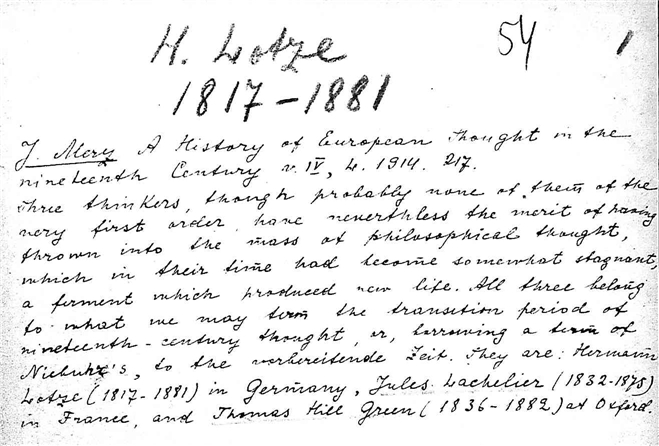 H. Lotze 54 1
1817-1881
J. Merz A History of European Thought in the
nineteenth Century v. IV, L. 1914. 217.
Three thinkers, though probably none of them of the
very first order, have neverthless the merit of having
thrown into the mass of philosophical thought,
which in their time had become somewhat stagnant,
a ferment which produced new life. All three belong
to what we may term the transition period of
nineteenth-century thought, or, borrowing a term of
Niebuhr's, to the vorbereitende Zeit. They are: Hermann
Lotze (1817-1881) in Germany, Jules Lachelier (1832-1875)
in France, and Thomas Hill Green (1836-1882) at Oxford.